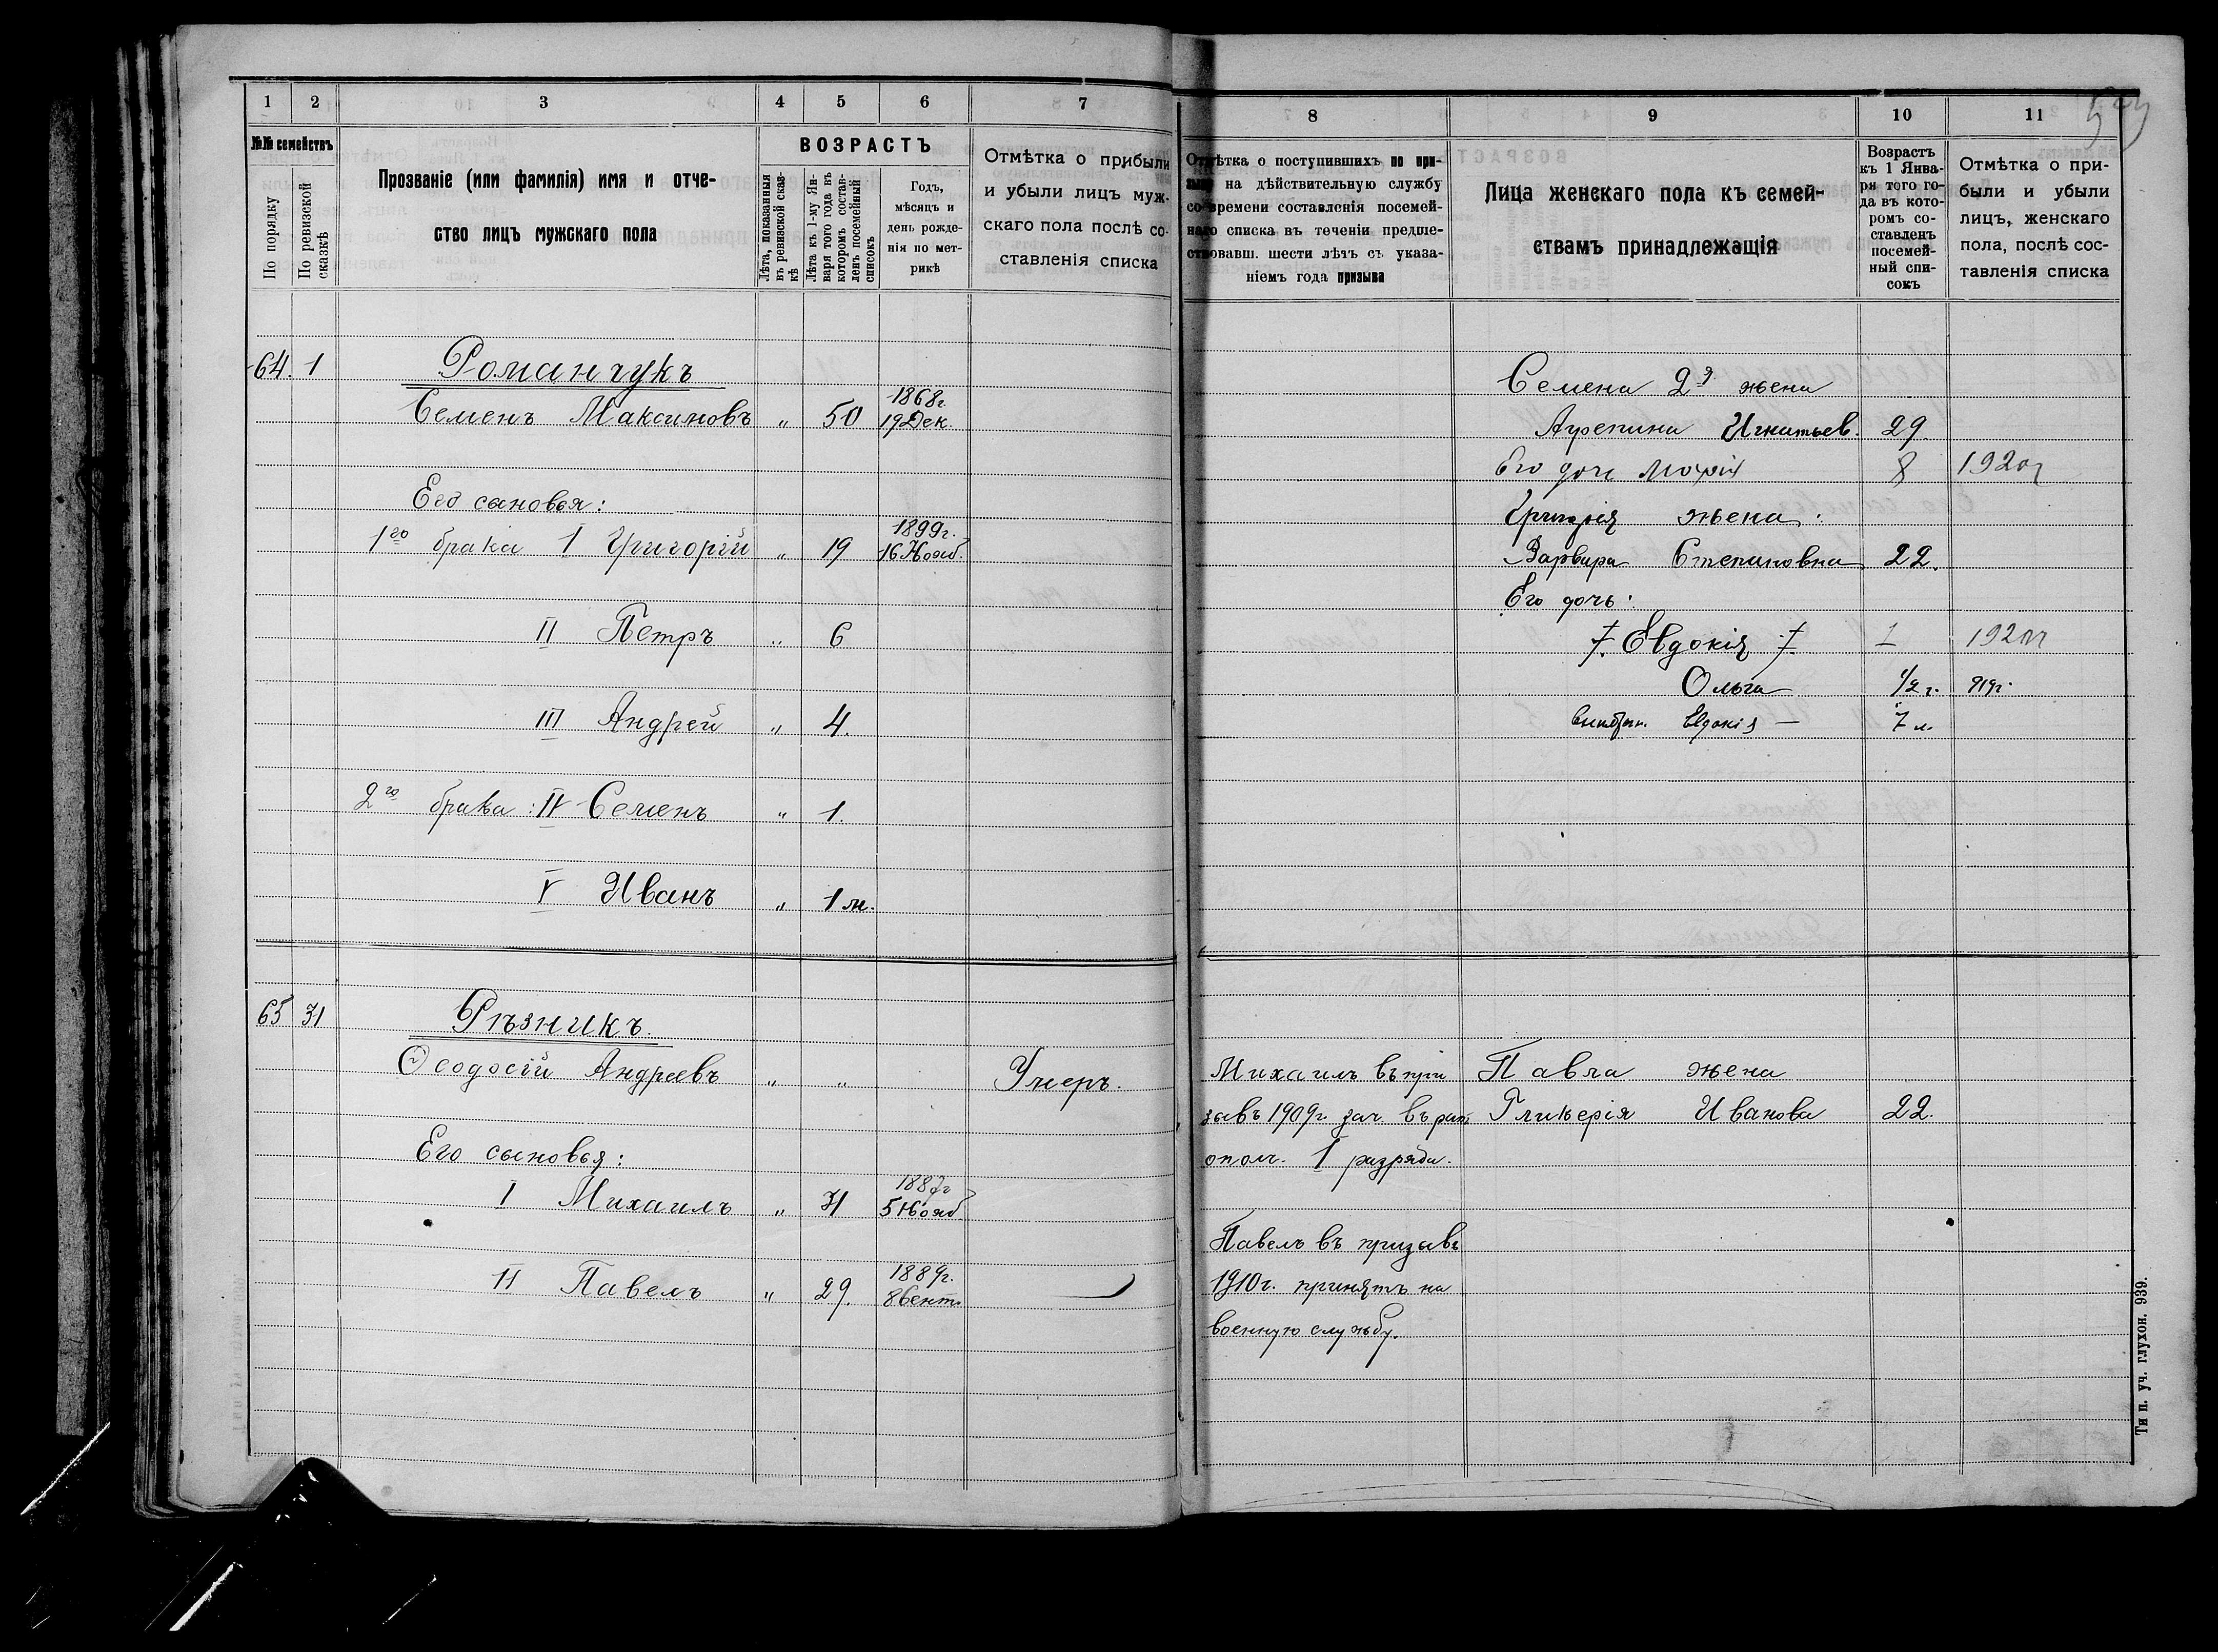 1 2 3 4 5 6 7
№№ семействъ
По порядку
По ревизской сказкѣ
Прозваніе (или фамилія) имя и отче-
ство лицъ мужскаго пола
ВОЗРАСТЪ
Лѣта, показанныя
въ ревизской сказ-
кѣ
Лѣта къ 1-му Ян-
варя того года въ
которомъ состав-
ленъ посемейный
списокъ
Годъ,
мѣсяцъ и
день рожде-
нія по мет-
рикѣ
Отмѣтка о прибыли
и убыли лицъ муж-
скаго пола послѣ со-
ставленія списка
64. 1 Романчукъ
Семенъ Максимовъ „ 50 1868г.
19 Дек.
Его сыновья:
1го брака I Григорій „ 19 1899г.
16 Нояб.
II Петръ „ 6
III Андрей „ 4.
2го брака: IV Семенъ „ 1.
V Иванъ „ 1 м.
65 31 Рѣзникъ.
Ѳеодосій Андреевъ „ „ Умеръ.
Его сыновья:
I Михаилъ „ 31 1887г
5 Нояб.
II Павелъ „ 29. 1889г.
8 Сент.
8 9 10 11
Отмѣтка о поступившихъ по при-
зыву на дѣйствительную службу
со времени составленія посемей-
наго списка въ теченіи предше-
ствовавш. шести лѣтъ съ указа-
ніемъ года призыва
Лица женскаго пола къ семей-
ствамъ принадлежащія
Возрастъ
къ 1 Янва-
ря того го-
да въ кото-
ромъ со-
ставленъ
посемей-
ный спи-
сокъ
Отмѣтка о при-
были и убыли
лицъ, женскаго
пола, послѣ сос-
тавленія списка
Семена 2я жена
Агрепина Игнатьев. 29.
Его доч Марія 8 1920г
Григорія жена:
Варвара Степановна 22.
Его дочь:
Евдокія 1
Ольга 1/2 г. 919г.
Евдокія — 7 л.
Михаилъ въ при Павла жена
зывъ 1909г. зач. въ рат. Гликерія Иванова 22.
ополч. I разряда.
Павелъ въ призывъ
1910г. принятъ на
военную службу.
Ти п. уч. глухон. 939.